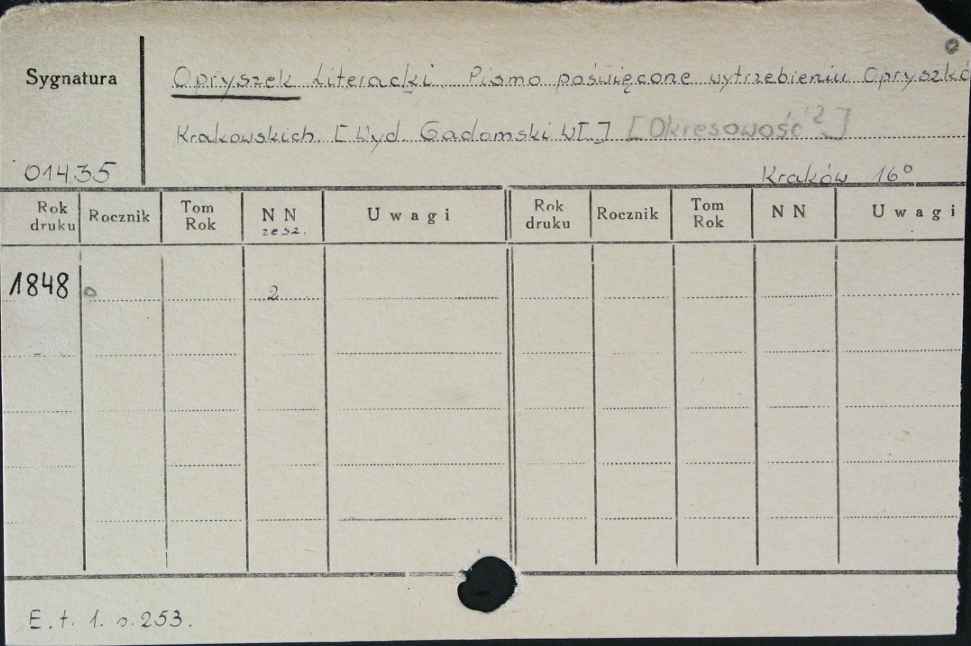 Sygnatura
Opryszek Literacki. Pismo poświęcone wytrzebieniu Opryszkó
Krakowskich. [Wyd. Gadomski Wł.] [Okresowość ?]
01435
Kraków 16°
Rok druku Rocznik Tom Rok NN zesz. Uwagi Rok druku Rocznik Tom Rok NN Uwagi
1848 2
E. t. 1. s. 253.